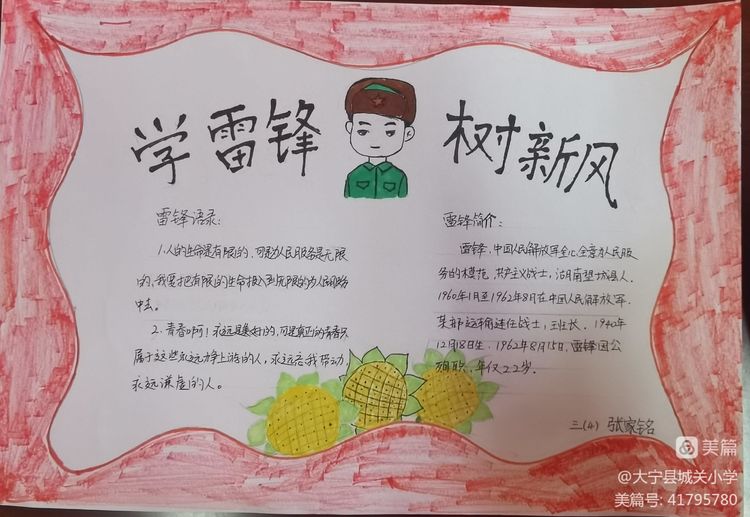 学雷锋 树新风
雷锋语录:
1.人的生命是有限的,可是为人民服务是无限
的,我要把有限的生命投入到无限的为人民服务
中去。
2.青春啊!永远是美好的,可是真正的青春只
属于这些永远力争上游的人,永远忘我劳动,
永远谦虚的人。
雷锋简介:
雷锋,中国人民解放军全心全意为人民服
务的模范,共产主义战士,湖南望城县人,
1960年1月至1962年8月在中国人民解放军
某部运输连任战士,班长。1940年
12月18日生,1962年8月15日,雷锋因公
殉职,年仅22岁。
三(4) 张家铭
美篇
@大宁县城关小学
美篇号: 41795780